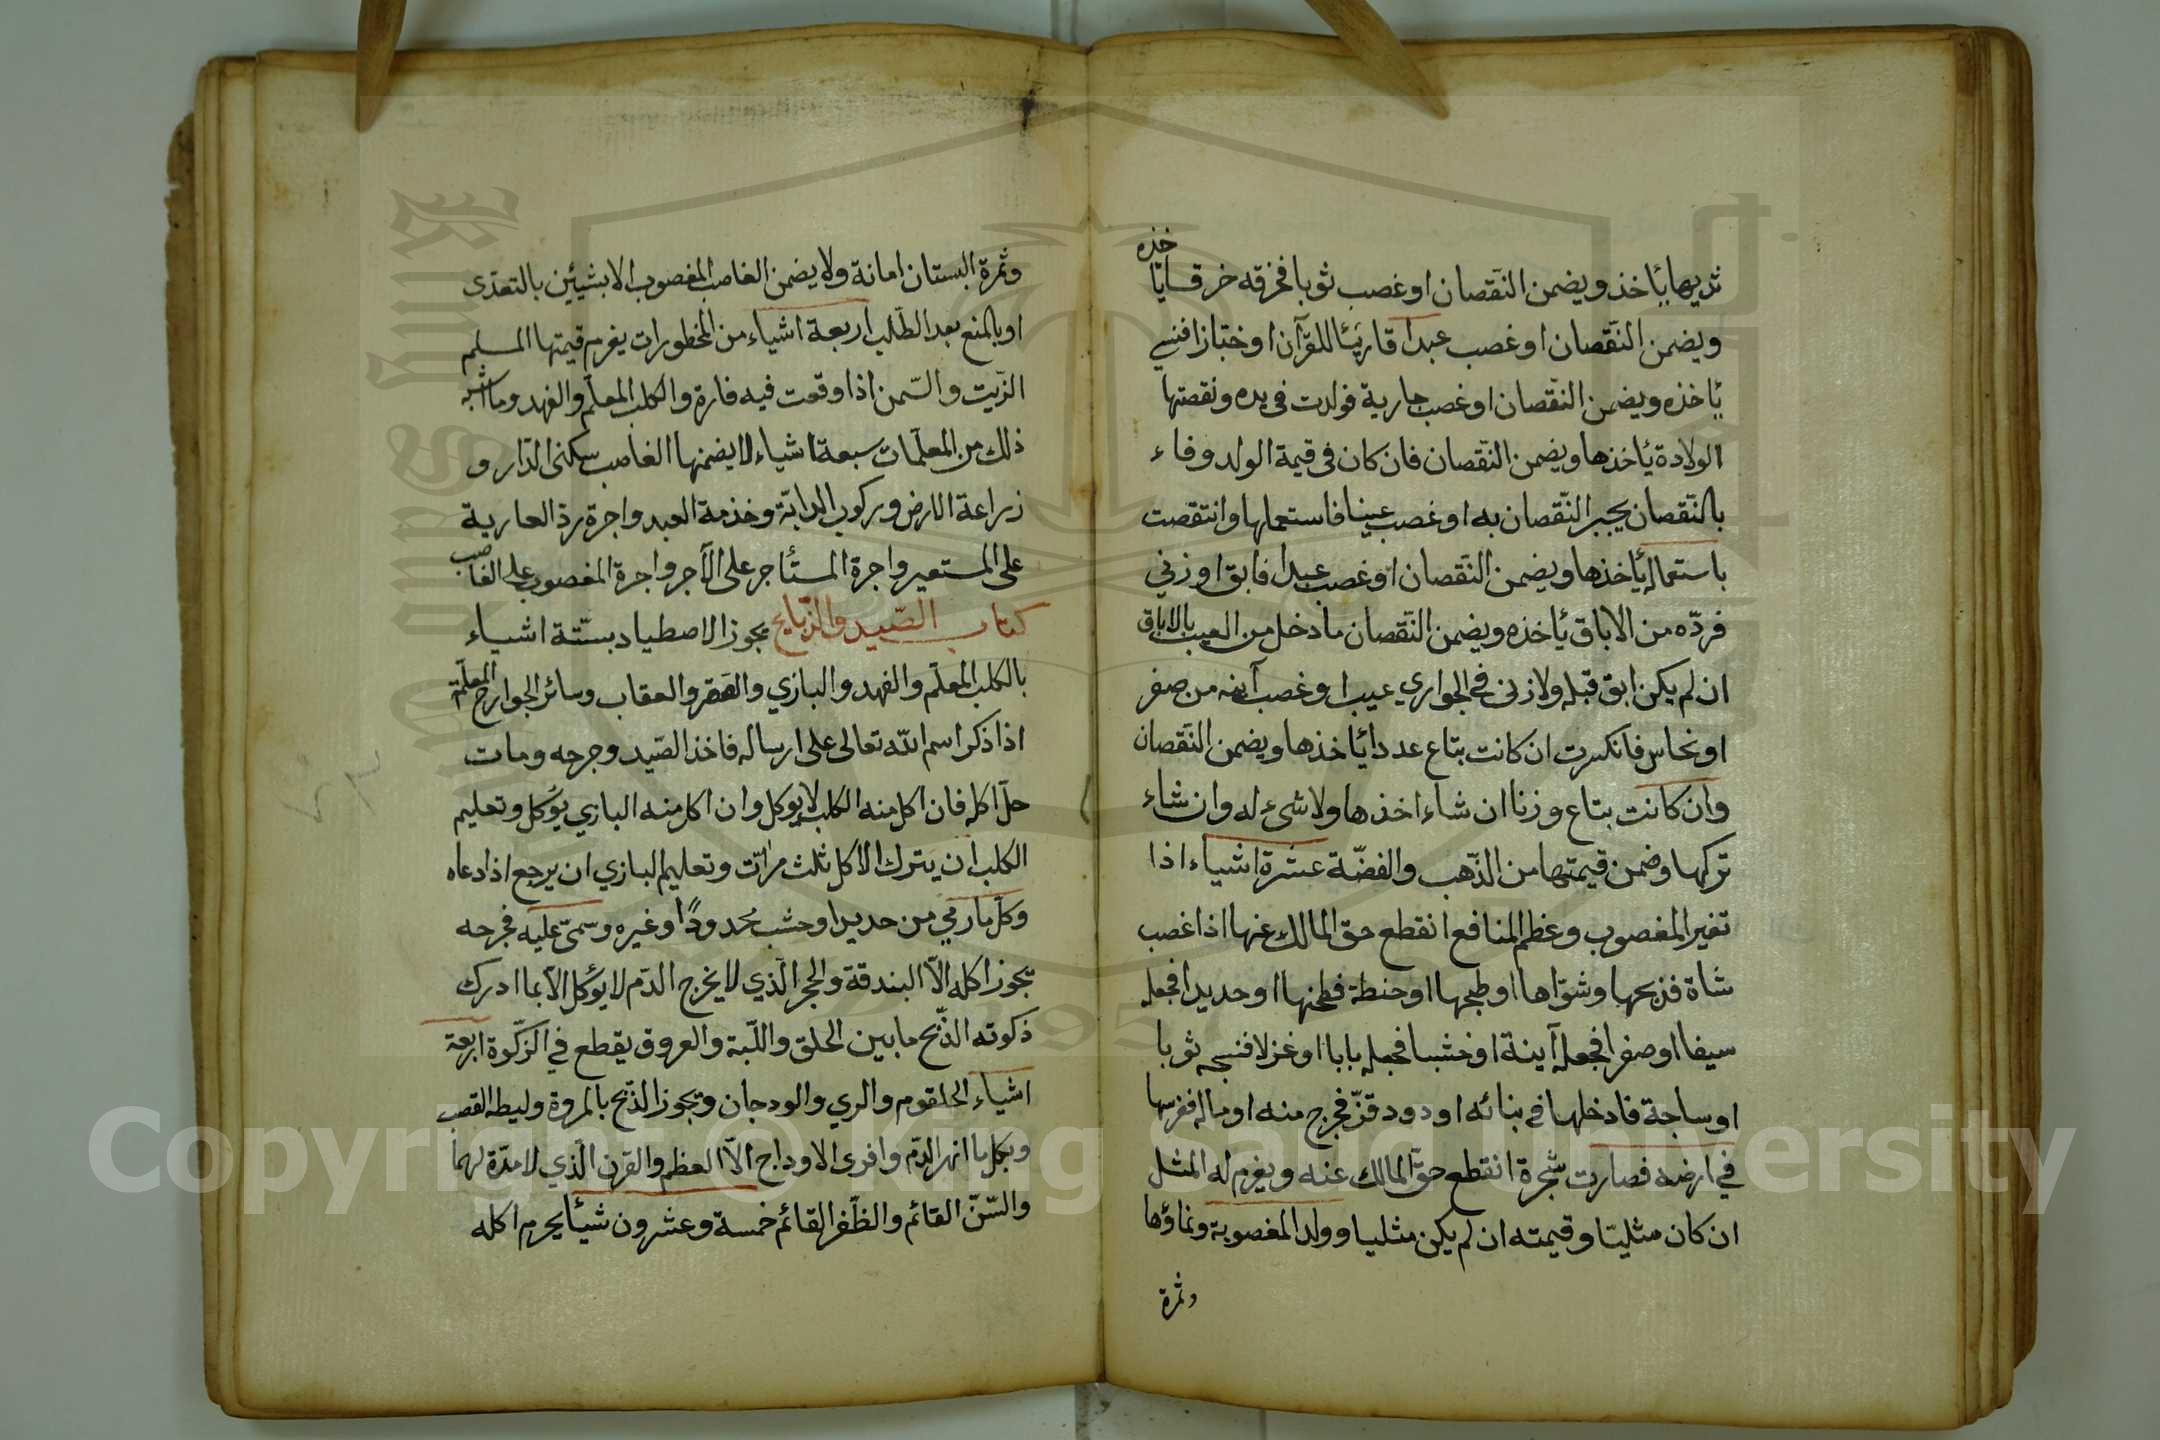 ثدييها يأخذ ويضمن النقصان او غصب ثوبا فخرقه خرقا يأخذه
ويضمن النقصان او غصب عبدا قارئا للقرآن او خبازا فنسي
يأخذه ويضمن النقصان او غصب جارية فولدت في يده ونقصتها
الولادة يأخذها ويضمن النقصان فان كان في قيمة الولد وفاء
بالنقصان يجبر النقصان به او غصب عينا فاستعملها وانتقصت
باستعماله يأخذها ويضمن النقصان او غصب عبدا فابق او زني
فردّه من الاباق يأخذه ويضمن النقصان ما دخل من العيب بالاباق
ان لم يكن ابق قبله ولا زنى في الجواري عيب او غصب آنية من صفر
او نحاس فانكسرت ان كانت بتاع عددا يأخذها ويضمن النقصان
وان كانت بتاع وزنا ان شاء اخذها ولا شيء له وان شاء
تركها وضمن قيمتها من الذّهب والفضّة عشرة اشياء اذا
تغير المغصوب وعظم المنافع انقطع حق المالك عنها اذا غصب
شاة فذبحها وشوّاها او طبخها او حنطة فطحنها او حديدا فجعله
سيفا او صفرا فجعله آينة او خشبا فجعله بابا او غزلا فنسجه ثوبا
او ساجة فادخلها في بنائه او دود قزّ فخرج منه او ماله فغرسها
في ارضه فصارت شجرة انقطع حقّ المالك عنه ويغرم له المثل
ان كان مثليّا وقيمته ان لم يكن مثليا وولد المغصوبة ونماؤها
وثمرة
وثمرة البستان امانة ولا يضمن الغاصب المغصوب الا بشيئين بالتعدّى
او بالمنع بعد الطّلب اربعة اشياء من المخطورات يغرم قيمتها المسلم
الزّيت والسّمن اذا وقعت فيه فارة والكلب المعلّم والفهد وما اشبه
ذلك من المعلّمات سبعة اشياء لا يضمنها الغاصب سكنى الدّار و
زراعة الارض وركوب الدابّة وخدمة العبد واجرة ردّ العارية
على المستعير واجرة المستأجر على الآجر واجرة المغصوب على الغاصب
كتاب الصّيد والذّبايح يجوز الاصطياد بستّة اشياء
بالكلب المعلّم والفهد والبازي والصقر والعقاب وسائر الجوارح المعلّمة
اذا ذكر اسم اللّه تعالى على ارساله فاخذ الصّيد وجرحه ومات
حلّ اكله فان اكل منه الكلب لا يوكل وان اكل منه البازي يؤكل وتعليم
الكلب ان يترك الاكل ثلث مرّات وتعليم البازي ان يرجع اذا دعاه
وكلّ ما رمي من حديد او خشب محدودًا وغيره وسمّى عليه فجرحه
يجوز اكله الّا البندقة والحجر الّذي لا يخرج الدّم لا يؤكل الّا بما ادرك
ذكوته الذّبح ما بين الحلق واللّبة والعروق يقطع في الزّكوة اربعة
اشياء الحلقوم والمري والودجان ويجوز الذّبح بالمروة وليطه القصب
وبكل ما انهر الدّم وافرى الاوداج الّا العظم والقرن الّذي لا مدّة لهما
والسّنّ القائم والظّفر القائم خمسة وعشرون شيئا يحرم اكله
Copyright © King Saud University
King Saud University
1957